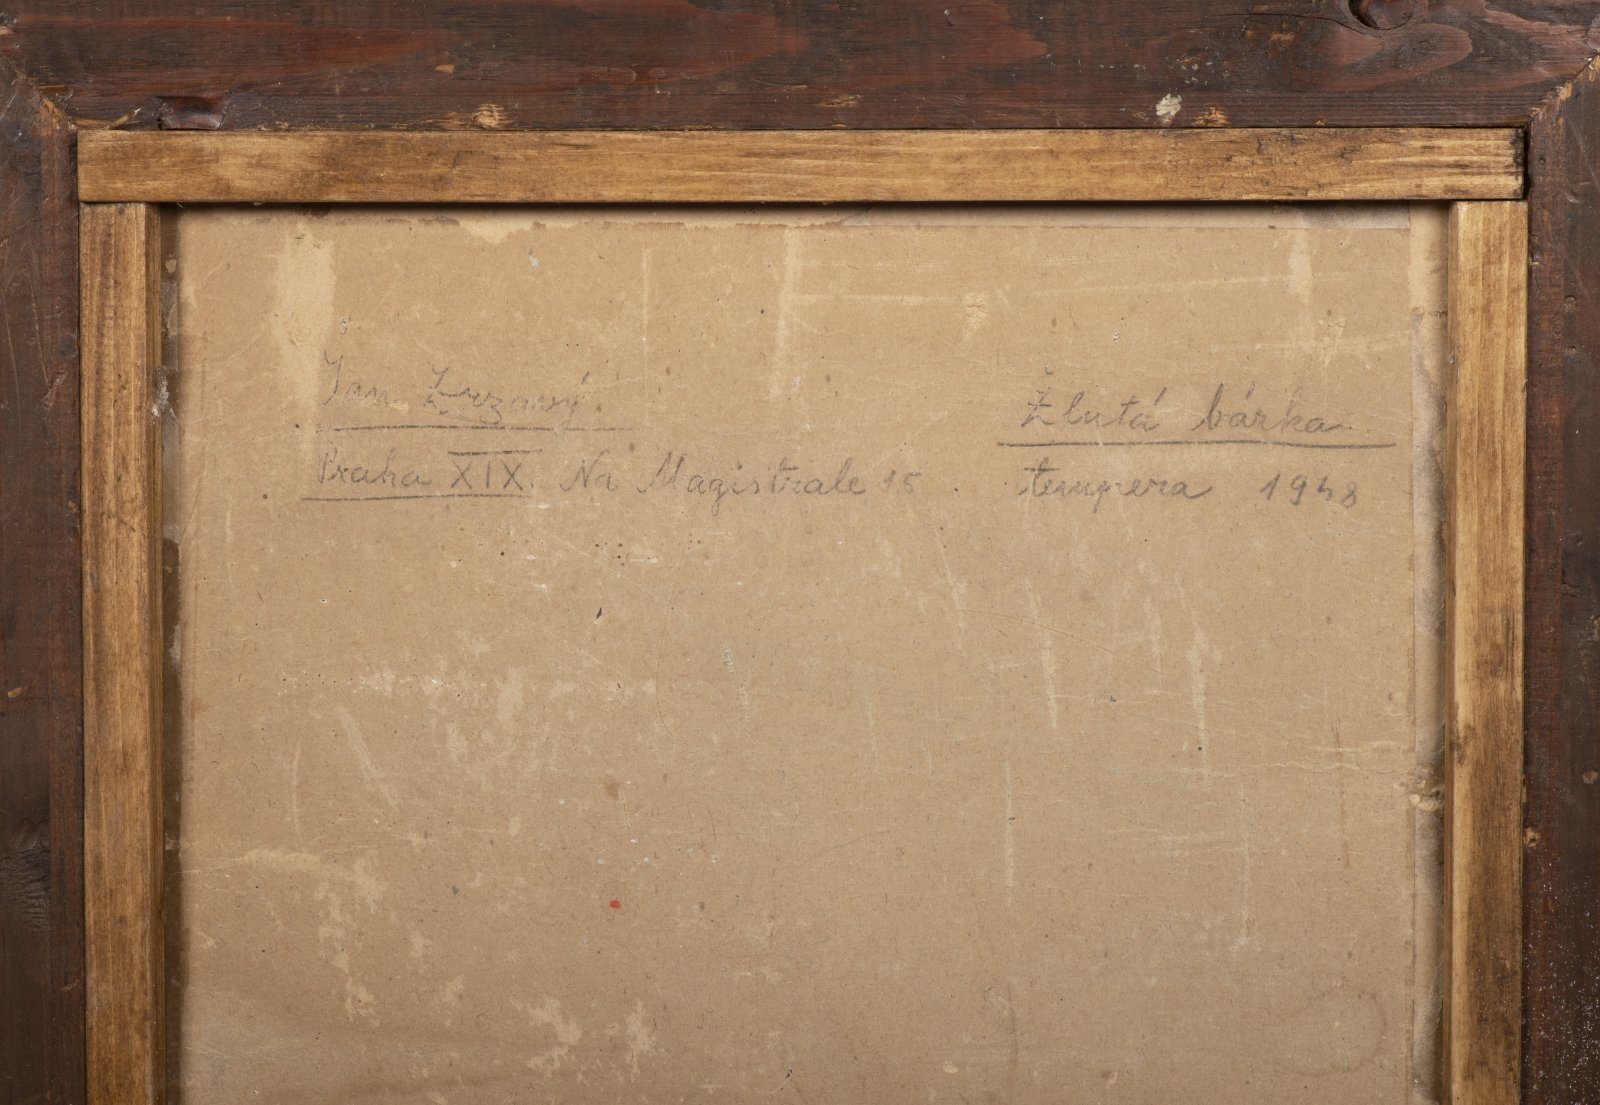 Jan Zrzavý.
Praha XIX. Na Magistrale 15.
Žlutá bárka.
tempera 1948